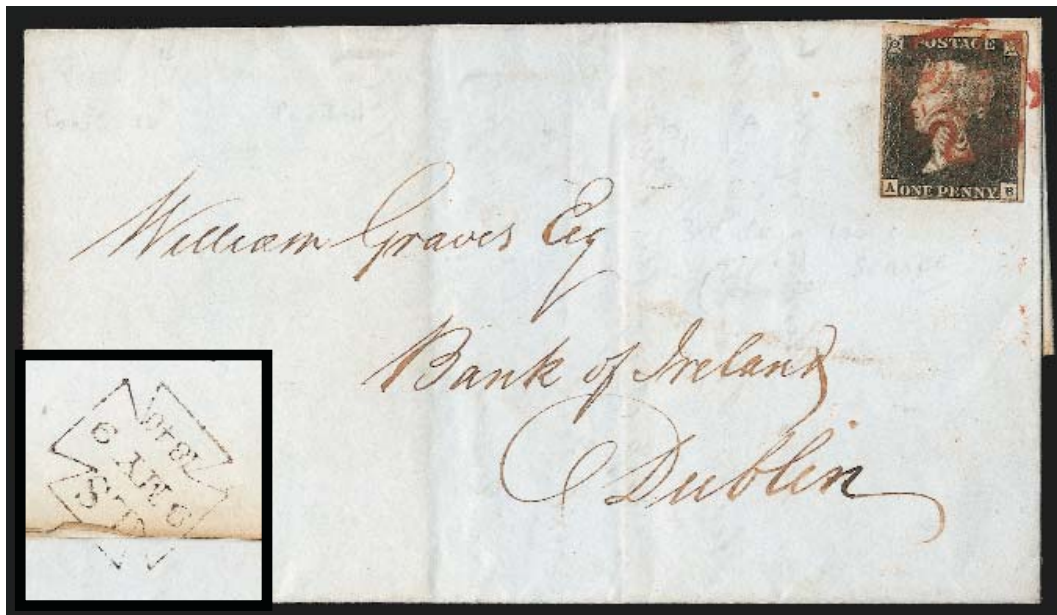 POSTAGE
A ONE PENNY B
William Graves Esq
Bank of Ireland
Dublin
6 MY 6